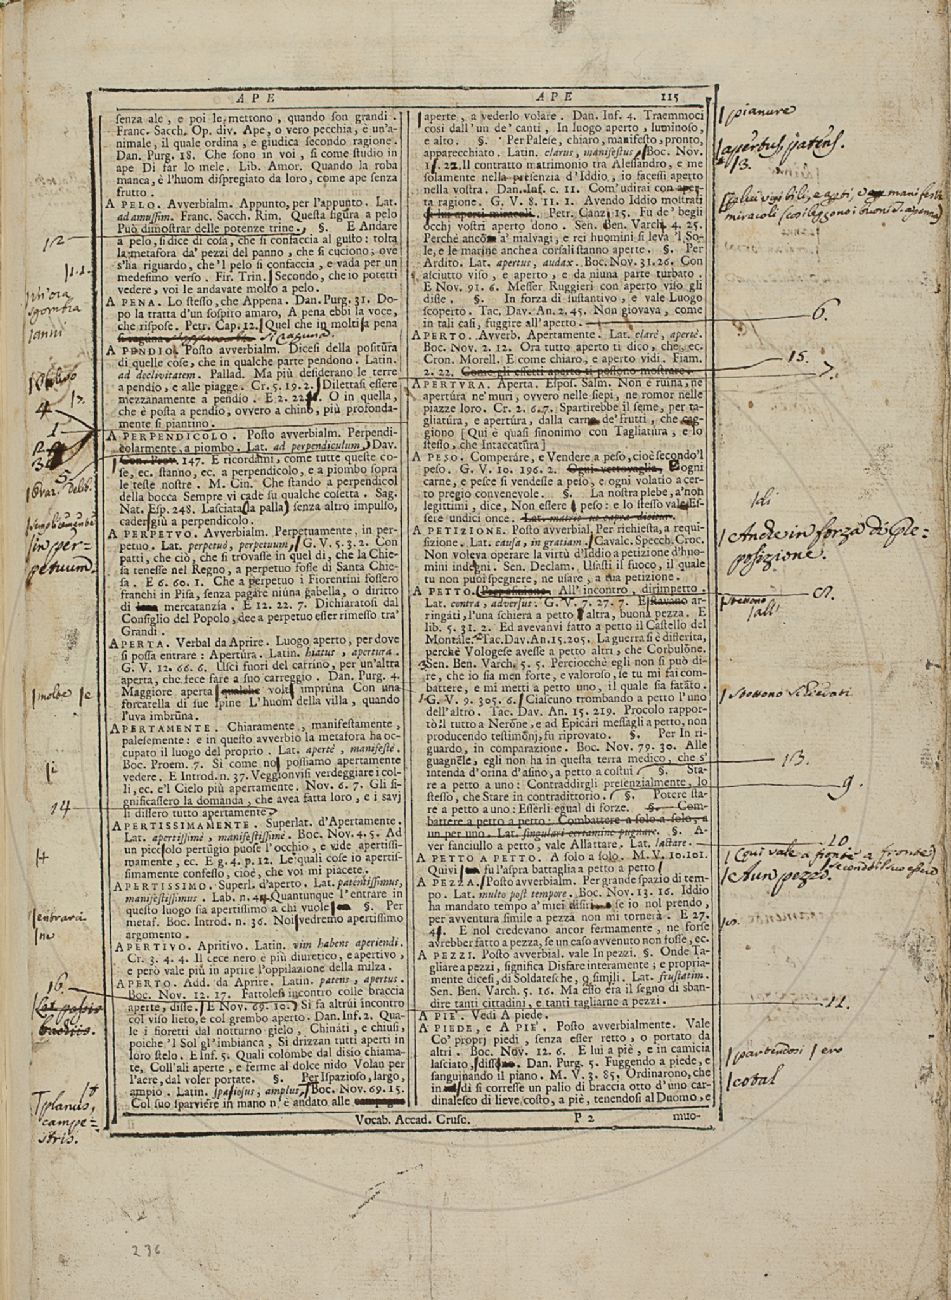 APE
APE 115
senza ale, e poi le mettono, quando son grandi.
Franc. Sacch. Op. div. Ape, o vero pecchia, è un'a-
nimale, il quale ordina, e giudica secondo ragione.
Dan. Purg. 18. Che sono in voi, sì come studio in
ape Di far lo mele. Lib. Amor. Quando la roba
manca, è l'huom dispregiato da loro, come ape senza
frutto.
A PELO. Avverbialm. Appunto, per l'appunto. Lat.
ad amussim. Franc. Sacch. Rim. Questa figura a pelo
Può dimostrar delle potenze trine. §. E Andare
a pelo, si dice di cosa, che si confaccia al gusto: tolta
la metafora da' pezzi del panno, che si cuciono, ove
s'ha riguardo, che 'l pelo si confaccia, e vada per un
medesimo verso. Fir. Trin. Secondo, che io potetti
vedere, voi le andavate molto a pelo.
A PENA. Lo stesso, che Appena. Dan. Purg. 31. Do-
po la tratta d'un sospiro amaro, A pena ebbi la voce,
che rispose. Petr. Cap. 12. Quel che in molti a pena
A PENDIO. Posto avverbialm. Dicesi della positura
di quelle cose, che in qualche parte pendono. Latin.
ad declivitatem. Pallad. Ma più desiderano le terre
a pendio, e alle piagge. Cr. 5. 19. 2. Dilettasi essere
mezzanamente a pendio. E 2. 22. O in quella,
che è posta a pendio, ovvero a chino, più profonda-
mente si piantino.
A PERPENDICOLO. Posto avverbialm. Perpendi-
colarmente, a piombo. Lat. ad perpendiculum. Dav.
147. E ricordami, come tutte queste co-
se, ec. stanno, ec. a perpendicolo, e a piombo sopra
le teste nostre. M. Cin. Che stando a perpendicol
della bocca Sempre vi cade su qualche cosetta. Sag.
Nat. Esp. 248. Lasciata la palla senza altro impulso,
cader giù a perpendicolo.
A PERPETVO. Avverbialm. Perpetuamente, in per-
petuo. Lat. perpetuò, perpetuum. G. V. 5. 3. 2. Con
patti, che ciò, che si trovasse in quel dì, che la Chie-
sa tenesse nel Regno, a perpetuo fosse di Santa Chie-
sa. E 6. 60. 1. Che a perpetuo i Fiorentini fossero
franchi in Pisa, senza pagare niuna gabella, o diritto
di mercatanzia. E 12. 22. 7. Dichiaratosi dal
Consiglio del Popolo, dee a perpetuo esser rimesso tra'
Grandi.
APERTA. Verbal da Aprire. Luogo aperto, per dove
si possa entrare: Apertura. Latin. hiatus, apertura.
G. V. 12. 66. 6. Usci fuori del carrino, per un'altra
aperta, che fece fare a suo carreggio. Dan. Purg. 4.
Maggiore aperta volte impruna Con una
forcatella di sue spine L'huom della villa, quando
l'uva imbruna.
APERTAMENTE. Chiaramente, manifestamente,
palesemente: e in questo avverbio la metafora ha oc-
cupato il luogo del proprio. Lat. apertè, manifestè.
Boc. Proem. 7. Si come noi possiamo apertamente
vedere. E Introd. n. 37. Veggionvisi verdeggiare i col-
li, ec. e'l Cielo più apertamente. Nov. 6. 7. Gli si-
gnificassero la domanda, che avea fatta loro, e i savj
si dissero tutto apertamente.
APERTISSIMAMENTE. Superlat. d'Apertamente.
Lat. apertissimè, manifestissimè. Boc. Nov. 4. 5. Ad
un piccolo pertugio puose l'occhio, e vide apertissi-
mamente, ec. E g. 4. p. 12. Le quali cose io apertis-
simamente confesso, cioè, che voi mi piacete.
APERTISSIMO. Superl. d'aperto. Lat. patentissimus,
manifestissimus. Lab. n. Quantunque l'entrare in
questo luogo sia apertissimo a chi vuole §. Per
metaf. Boc. Introd. n. 36. Noi vedremo apertissimo
argomento.
APERTIVO. Apritivo. Latin. vim habens aperiendi.
Cr. 3. 4. 4. Il cece nero è più diuretico, e apertivo,
e però vale più in aprire l'oppilazione della milza.
APERTO. Add. da Aprire. Latin. patens, apertus.
Boc. Nov. 12. 17. Fattolesi incontro colle braccia
aperte, disse. E Nov. 69. 10. Si fa altrui incontro
col viso lieto, e col grembo aperto. Dan. Inf. 2. Qua-
le i fioretti dal notturno gielo, Chinati, e chiusi,
poiche 'l Sol gl'imbianca, Si drizzan tutti aperti in
loro stelo. E Inf. 5. Quali colombe dal disio chiama-
te, Coll'ali aperte, e ferme al dolce nido Volan per
l'aere, dal voler portate. §. Per Ispazioso, largo,
ampio. Latin. spatiosus, amplus. Boc. Nov. 69. 15.
Col suo sparviere in mano n'è andato alle campagne
aperte, a vederlo volare. Dan. Inf. 4. Traemmoci
così dall'un de' canti, In luogo aperto, luminoso,
e alto. §. Per Palese, chiaro, manifesto, pronto,
apparecchiato. Latin. clarus, manifestus. Boc. Nov.
1. 22. Il contratto matrimonio tra Alessandro, e me
solamente nella presenzia d'Iddio, io facessi aperto
nella vostra. Dan. Inf. c. 11. Com' udirai con aper-
ta ragione. G. V. 8. 11. 1. Avendo Iddio mostrati
Petr. Canz. 15. Fu de' begli
occhj vostri aperto dono. Sen. Ben. Varch. 4. 25.
Perchè ancora a' malvagi, e rei huomini si leva 'l So-
le, e le marine anche a corsali stanno aperte. §. Per
Ardito. Lat. apertus, audax. Boc. Nov. 31. 26. Con
asciutto viso, e aperto, e da niuna parte turbato.
E Nov. 91. 6. Messer Ruggieri con aperto viso gli
disse. §. In forza di sustantivo, e vale Luogo
scoperto. Tac. Dav. An. 2. 45. Non giovava, come
in tali casi, fuggire all'aperto.
APERTO. Avverb. Apertamente. Lat. clarè, apertè.
Boc. Nov. 2. 12. Ora tutto aperto ti dico, che, ec.
Cron. Morell. E come chiaro, e aperto vidi. Fiam.
2. 22. Come gli effetti aperto ti possono mostrare.
APERTVRA. Aperta. Espos. Salm. Non è ruina, ne
apertura ne' muri, ovvero nelle siepi, ne romor nelle
piazze loro. Cr. 2. 6. 7. Spartirebbe il seme, per ta-
gliatura, e apertura, dalla carne de' frutti, che cag-
giono [Qui è quasi sinonimo con Tagliatura, e lo
stesso, che Intaccatura]
A PESO. Comperare, e Vendere a peso, cioè secondo'l
peso. G. V. 10. 196. 2. Ogni vettovaglia, E ogni
carne, e pesce si vendesse a peso, e ogni volatio a cer-
to pregio convenevole. §. La nostra plebe, a' non
legittimi, dice, Non essere peso: e lo stesso vale Es-
sere undici once.
A PETIZIONE. Posto avverbial. Per richiesta, a requi-
sizione. Lat. causa, in gratiam. Cavalc. Specch. Croc.
Non voleva operare la virtù d'Iddio a petizione d'huo-
mini indegni. Sen. Declam. Usasti il fuoco, il quale
tu non puoi spegnere, ne usare, a tua petizione.
A PETTO. All'incontro, dirimpetto.
Lat. contra, adversus. G. V. 7. 27. 7. E stavano ar-
ringati, l'una schiera a petto altra, buona pezza. E
lib. 5. 31. 2. Ed avevanvi fatto a petto il Castello del
Montale. Tac. Dav. An. 15. 205. La guerra si è disserita,
perchè Vologese avesse a petto altri, che Corbulone.
Sen. Ben. Varch. 5. 5. Perciocchè egli non si può di-
re, che io sia men forte, e valoroso, se tu mi fai com-
battere, e mi metti a petto uno, il quale sia fatato.
G. V. 9. 305. 6. Ciascuno trombando a petto l'uno
dell'altro. Tac. Dav. An. 15. 219. Procolo rappor-
tò il tutto a Nerone, e ad Epicari messagli a petto, non
producendo testimonj, fu riprovato. §. Per In ri-
guardo, in comparazione. Boc. Nov. 79. 30. Alle
guagnele, egli non ha in questa terra medico, che s'
intenda d'orina d'asino, a petto a costui §. Sta-
re a petto a uno: Contraddirgli presenzialmente, lo
stesso, che Stare in contradittorio. §. Potere sta-
re a petto a uno: Esserli egual di forze. §. Com-
battere a petto a petto: Combattere a solo a solo, a
un per uno. Lat. singulari certamine pugnare. §. A-
ver fanciullo a petto, vale Allattare. Lat. lactare.
A PETTO A PETTO. A solo a solo. M. V. 10. 101.
Quivi fu l'aspra battaglia a petto a petto
A PEZZA. Posto avverbialm. Per grande spazio di tem-
po. Lat. multo post tempore. Boc. Nov. 13. 16. Iddio
ha mandato tempo a' miei se io nol prendo,
per avventura simile a pezza non mi tornerà. E 27.
E nol credevano ancor fermamente, ne forse
avrebber fatto a pezza, se un caso avvenuto non fosse, ec.
A PEZZI. Posto avverbial. vale In pezzi. §. Onde Ta-
gliare a pezzi, significa Disfare interamente; e propria-
mente dicesi, di Soldatesche, o simili. Lat. frustatim.
Sen. Ben. Varch. 5. 16. Ma esso era il segno di sban-
dire tanti cittadini, e tanti tagliarne a pezzi.
A PIE'. Vedi A piede.
A PIEDE, e A PIE'. Posto avverbialmente. Vale
Co' proprj piedi, senza esser retto, o portato da
altri. Boc. Nov. 12. 6. E lui a piè, e in camicia
lasciato, Dan. Purg. 5. Fuggendo a piede, e
sanguinando il piano. M. V. 3. 85. Ordinarono, che
in di si corresse un palio di braccia otto d'uno car-
dinalesco di lieve costo, a piè, tenendosi al Duomo, e
Vocab. Accad. Crusc. P 2 muo-
12
4
1
14
16.
in per-
petuum.
entrarci
planus,
campe-
stris.
pianure
apertus, patens.
13.
6.
15.
7.
Anche in forza di Pre-
posizione.
8.
13.
9.
10
A un pezzo.
11.
partendosi
236